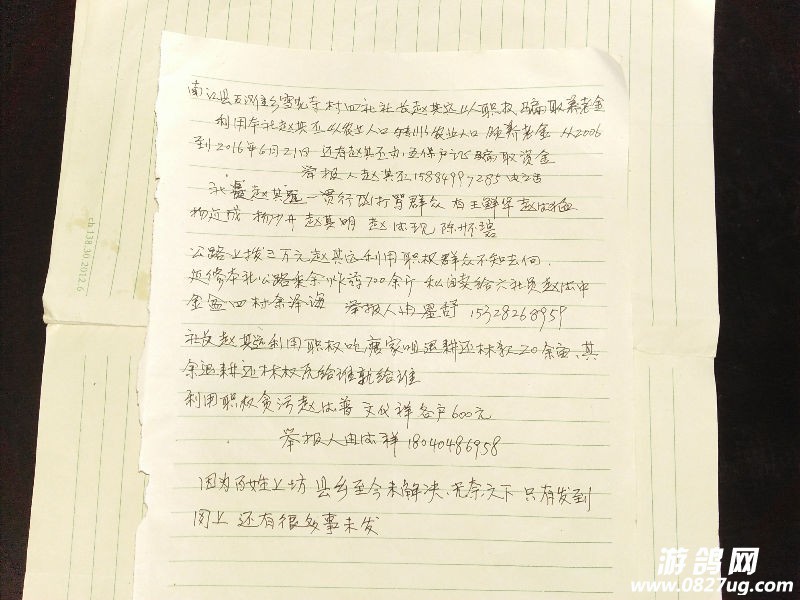 南江县瓦滩乡雪光寺村四社社长赵其远以职权骗取养老金
利用本社赵其丕以农业人口转非农业人口领养老金从2006
到2016年6月21日还有赵其丕办五保户记骗取资金
举报人赵其丕15884997285
社长赵其远一贯行凶打骂群众有王鲜华赵
杨近成 赵其明 赵 现 陈怀碧
公路上拨三万元赵其远利用职权群众不知去向
其修本社公路剩余炸药700余斤私自卖给六社员赵 中
金盆四村余泽海 举报人 15328268959
社长赵其远利用职权吃唐家咀退耕还林款20余亩、其
余退耕还林权元给谁就给谁
利用职权贪污赵 普 文仪祥各户600元
举报人 祥18040486958
因为百姓上坊县乡至今未解决、无奈之下只有发到
网上还有很多事未发
ch 138.30.2012.6
游鸽网
www.0827ug.com